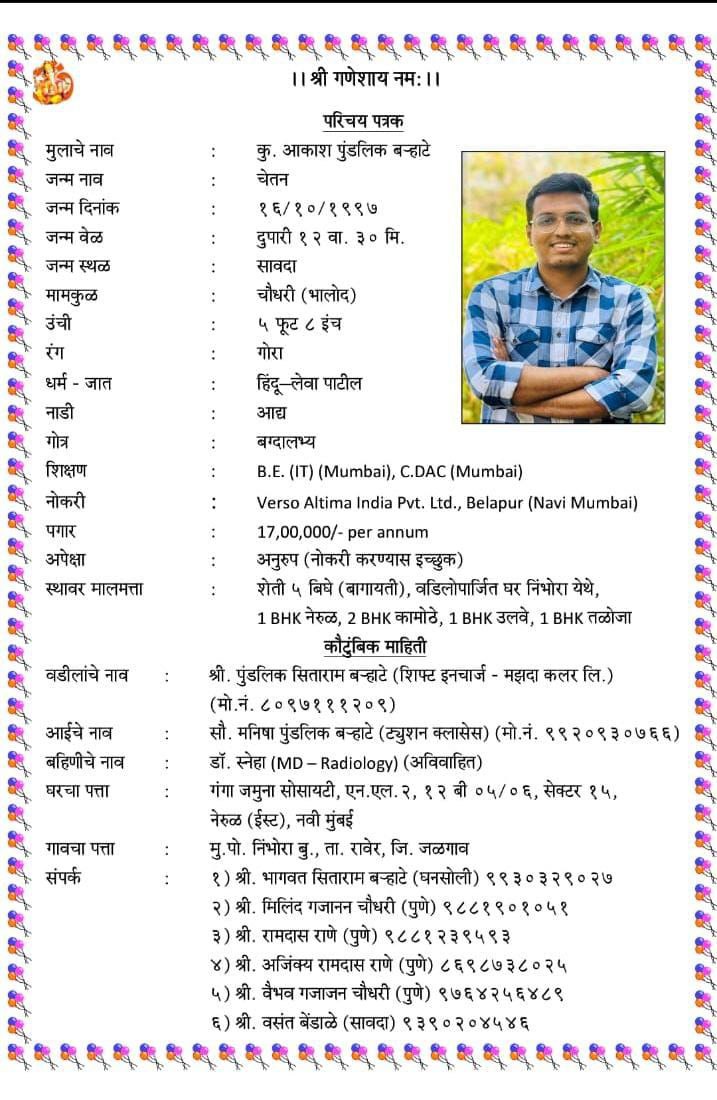 ।। श्री गणेशाय नमः।।
परिचय पत्रक
मुलाचे नाव : कु. आकाश पुंडलिक बऱ्हाटे
जन्म नाव : चेतन
जन्म दिनांक : १६/१०/१९९७
जन्म वेळ : दुपारी १२ वा. ३० मि.
जन्म स्थळ : सावदा
मामकुळ : चौधरी (भालोद)
उंची : ५ फूट ८ इंच
रंग : गोरा
धर्म - जात : हिंदू–लेवा पाटील
नाडी : आद्य
गोत्र : बग्दालभ्य
शिक्षण : B.E. (IT) (Mumbai), C.DAC (Mumbai)
नोकरी : Verso Altima India Pvt. Ltd., Belapur (Navi Mumbai)
पगार : 17,00,000/- per annum
अपेक्षा : अनुरुप (नोकरी करण्यास इच्छुक)
स्थावर मालमत्ता : शेती ५ बिघे (बागायती), वडिलोपार्जित घर निंभोरा येथे,
1 BHK नेरुळ, 2 BHK कामोठे, 1 BHK उलवे, 1 BHK तळोजा
कौटुंबिक माहिती
वडीलांचे नाव : श्री. पुंडलिक सिताराम बऱ्हाटे (शिफ्ट इनचार्ज - मझदा कलर लि.)
(मो.नं. ८०९७१११२०९)
आईचे नाव : सौ. मनिषा पुंडलिक बऱ्हाटे (ट्युशन क्लासेस) (मो.नं. ९९२०९३०७६६)
बहिणीचे नाव : डॉ. स्नेहा (MD – Radiology) (अविवाहित)
घरचा पत्ता : गंगा जमुना सोसायटी, एन.एल.२, १२ बी ०५/०६, सेक्टर १५,
नेरुळ (ईस्ट), नवी मुंबई
गावचा पत्ता : मु.पो. निंभोरा बु., ता. रावेर, जि. जळगाव
संपर्क : १) श्री. भागवत सिताराम बऱ्हाटे (घनसोली) ९९३०३२९०२७
२) श्री. मिलिंद गजानन चौधरी (पुणे) ९८८१९०१०५१
३) श्री. रामदास राणे (पुणे) ९८८१२३९५९३
४) श्री. अजिंक्य रामदास राणे (पुणे) ८६९८७३८०२५
५) श्री. वैभव गजाजन चौधरी (पुणे) ९७६४२५६४८९
६) श्री. वसंत बेंडाळे (सावदा) ९३९०२०४५४६